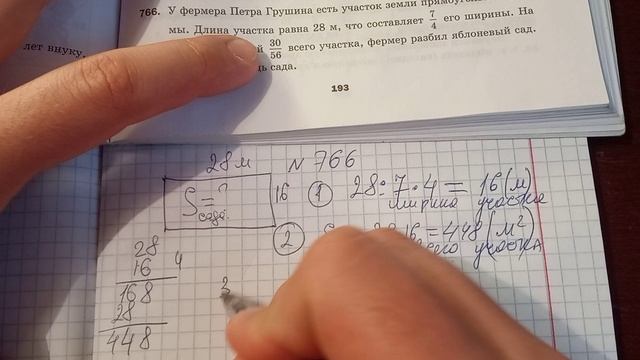 766. У фермера Петра Грушина есть участок земли
мы. Длина участка равна 28 м, что составляет 7/4 его ширины. На
30/56 всего участка, фермер разбил яблоневый сад.
сада.
лет внуку,
193
28 м
N 766
S = ?
сада.
16
① 28 : 7 · 4 = 16 (м)
ширина участка
② 16 = 448 (м²)
участка
28
16
4
168
28
448
3